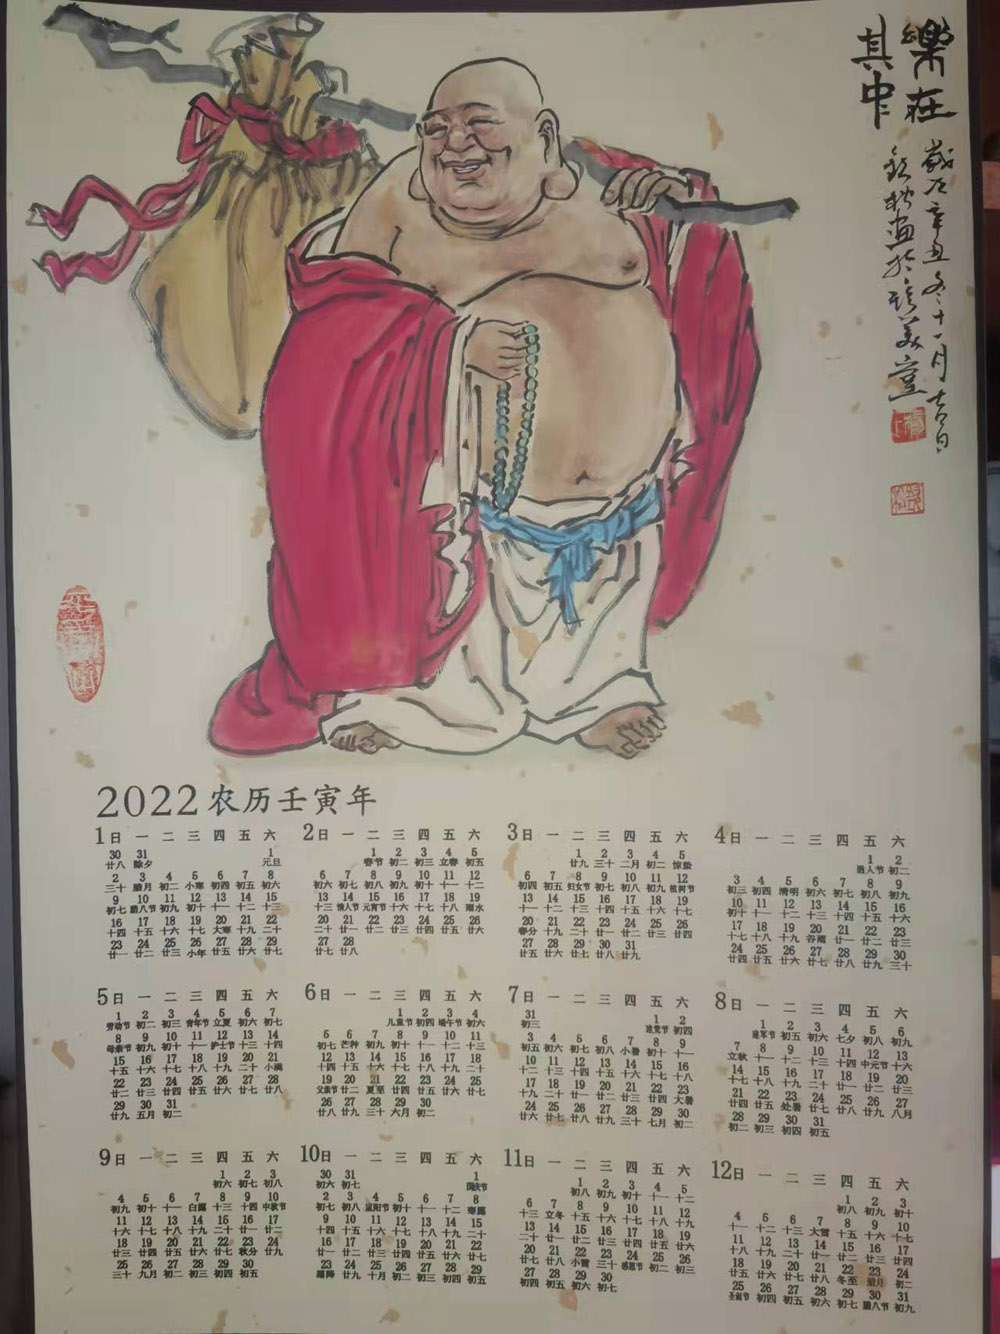 樂在
其中
歲次辛丑冬十一月吉日
2022农历壬寅年
1日 一 二 三 四 五 六
30 31 1
廿八 除夕 元旦
2 3 4 5 6 7 8
三十 腊月 初二 小寒 初四 初五 初六
9 10 11 12 13 14 15
初七 腊八节 初九 初十 十一 十二 十三
16 17 18 19 20 21 22
十四 十五 十六 十七 大寒 十九 二十
23 24 25 26 27 28 29
廿一 廿二 廿三 小年 廿五 廿六 廿七
2日 一 二 三 四 五 六
1 2 3 4 5
春节 初二 初三 立春 初五
6 7 8 9 10 11 12
初六 初七 初八 初九 初十 十一 十二
13 14 15 16 17 18 19
十三 情人节 元宵节 十六 十七 十八 雨水
20 21 22 23 24 25 26
二十 廿一 廿二 廿三 廿四 廿五 廿六
27 28
廿七 廿八
3日 一 二 三 四 五 六
1 2 3 4 5
廿九 三十 二月 初二 惊蛰
6 7 8 9 10 11 12
初四 初五 妇女节 初七 初八 初九 植树节
13 14 15 16 17 18 19
十一 十二 十三 十四 十五 十六 十七
20 21 22 23 24 25 26
春分 十九 二十 廿一 廿二 廿三 廿四
27 28 29 30 31
廿五 廿六 廿七 廿八 廿九
4日 一 二 三 四 五 六
1 2
愚人节 初二
3 4 5 6 7 8 9
初三 初四 清明 初六 初七 初八 初九
10 11 12 13 14 15 16
初十 十一 十二 十三 十四 十五 十六
17 18 19 20 21 22 23
十七 十八 十九 谷雨 廿一 廿二 廿三
24 25 26 27 28 29 30
廿四 廿五 廿六 廿七 廿八 廿九 三十
5日 一 二 三 四 五 六
1 2 3 4 5 6 7
劳动节 初二 初三 青年节 立夏 初六 初七
8 9 10 11 12 13 14
母亲节 初九 初十 十一 护士节 十三 十四
15 16 17 18 19 20 21
十五 十六 十七 十八 十九 二十 小满
22 23 24 25 26 27 28
廿二 廿三 廿四 廿五 廿六 廿七 廿八
29 30 31
廿九 五月 初二
6日 一 二 三 四 五 六
1 2 3 4
儿童节 初四 端午节 初六
5 6 7 8 9 10 11
初七 芒种 初九 初十 十一 十二 十三
12 13 14 15 16 17 18
十四 十五 十六 十七 十八 十九 二十
19 20 21 22 23 24 25
父亲节 廿二 夏至 廿四 廿五 廿六 廿七
26 27 28 29 30
廿八 廿九 三十 六月 初二
7日 一 二 三 四 五 六
31 1 2
初三 建党节 初四
3 4 5 6 7 8 9
初五 初六 初七 初八 小暑 初十 十一
10 11 12 13 14 15 16
十二 十三 十四 十五 十六 十七 十八
17 18 19 20 21 22 23
十九 二十 廿一 廿二 廿三 廿四 大暑
24 25 26 27 28 29 30
廿六 廿七 廿八 廿九 三十 七月 初二
8日 一 二 三 四 五 六
1 2 3 4 5 6
建军节 初五 初六 七夕 初八 初九
7 8 9 10 11 12 13
立秋 十一 十二 十三 十四 中元节 十六
14 15 16 17 18 19 20
十七 十八 十九 二十 廿一 廿二 廿三
21 22 23 24 25 26 27
廿四 廿五 处暑 廿七 廿八 廿九 八月
28 29 30 31
初二 初三 初四 初五
9日 一 二 三 四 五 六
1 2 3
初六 初七 初八
4 5 6 7 8 9 10
初九 初十 十一 白露 十三 十四 中秋节
11 12 13 14 15 16 17
十六 十七 十八 十九 二十 廿一 廿二
18 19 20 21 22 23 24
廿三 廿四 廿五 廿六 廿七 秋分 廿九
25 26 27 28 29 30
三十 九月 初二 初三 初四 初五
10日 一 二 三 四 五 六
30 31 1
初六 初七 国庆节
2 3 4 5 6 7 8
初七 初八 重阳节 初十 十一 十二 寒露
9 10 11 12 13 14 15
十四 十五 十六 十七 十八 十九 二十
16 17 18 19 20 21 22
廿一 廿二 廿三 廿四 廿五 廿六 廿七
23 24 25 26 27 28 29
霜降 廿九 十月 初二 初三 初四 初五
11日 一 二 三 四 五 六
1 2 3 4 5
初八 初九 初十 十一 十二
6 7 8 9 10 11 12
十三 立冬 十五 十六 十七 十八 十九
13 14 15 16 17 18 19
二十 廿一 廿二 廿三 廿四 廿五 廿六
20 21 22 23 24 25 26
廿七 廿八 小雪 三十 感恩节 初二 初三
27 28 29 30
初四 初五 初六 初七
12日 一 二 三 四 五 六
1 2 3
初八 初九 初十
4 5 6 7 8 9 10
十一 十二 十三 大雪 十五 十六 十七
11 12 13 14 15 16 17
十八 十九 二十 廿一 廿二 廿三 廿四
18 19 20 21 22 23 24
廿五 廿六 廿七 廿八 冬至 腊月 初二
25 26 27 28 29 30 31
圣诞节 初四 初五 初六 初七 腊八节 初九